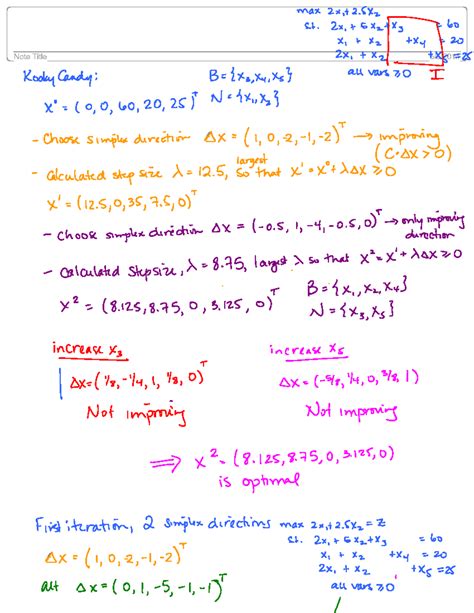 max 2x₁+2.5x₂
st. 2x₁ + 5x₂ + x₃ = 60
x₁ + x₂ + x₄ = 20
2x₁ + x₂ + x₅ = 25
all vars ≥ 0 I
Note Title
Kooky Candy: B = {x₃,x₄,x₅}
x⁰ = (0, 0, 60, 20, 25)ᵀ N = {x₁,x₂}
- Choose simplex direction Δx = (1, 0, -2, -1, -2)ᵀ → improving (C·Δx > 0)
- Calculated step size λ = 12.5, largest so that x¹ = x⁰ + λΔx ≥ 0
x¹ = (12.5, 0, 35, 7.5, 0)ᵀ
- Choose simplex direction Δx = (-0.5, 1, -4, -0.5, 0)ᵀ → only improving direction
- Calculated stepsize, λ = 8.75, largest λ so that x² = x¹ + λΔx ≥ 0
x² = (8.125, 8.75, 0, 3.125, 0)ᵀ B = {x₁, x₂, x₄}
N = {x₃, x₅}
increase x₃ increase x₅
Δx = (1/8, -1/4, 1, 1/8, 0)ᵀ Δx = (-5/8, 1/4, 0, 3/8, 1)
Not improving Not improving
⇒ x² = (8.125, 8.75, 0, 3.125, 0)
is optimal
First iteration, 2 simplex directions max 2x₁+2.5x₂ = z
st. 2x₁ + 5x₂ + x₃ = 60
Δx = (1, 0, -2, -1, -2)ᵀ x₁ + x₂ + x₄ = 20
2x₁ + x₂ + x₅ = 25
alt Δx = (0, 1, -5, -1, -1)ᵀ all vars ≥ 0